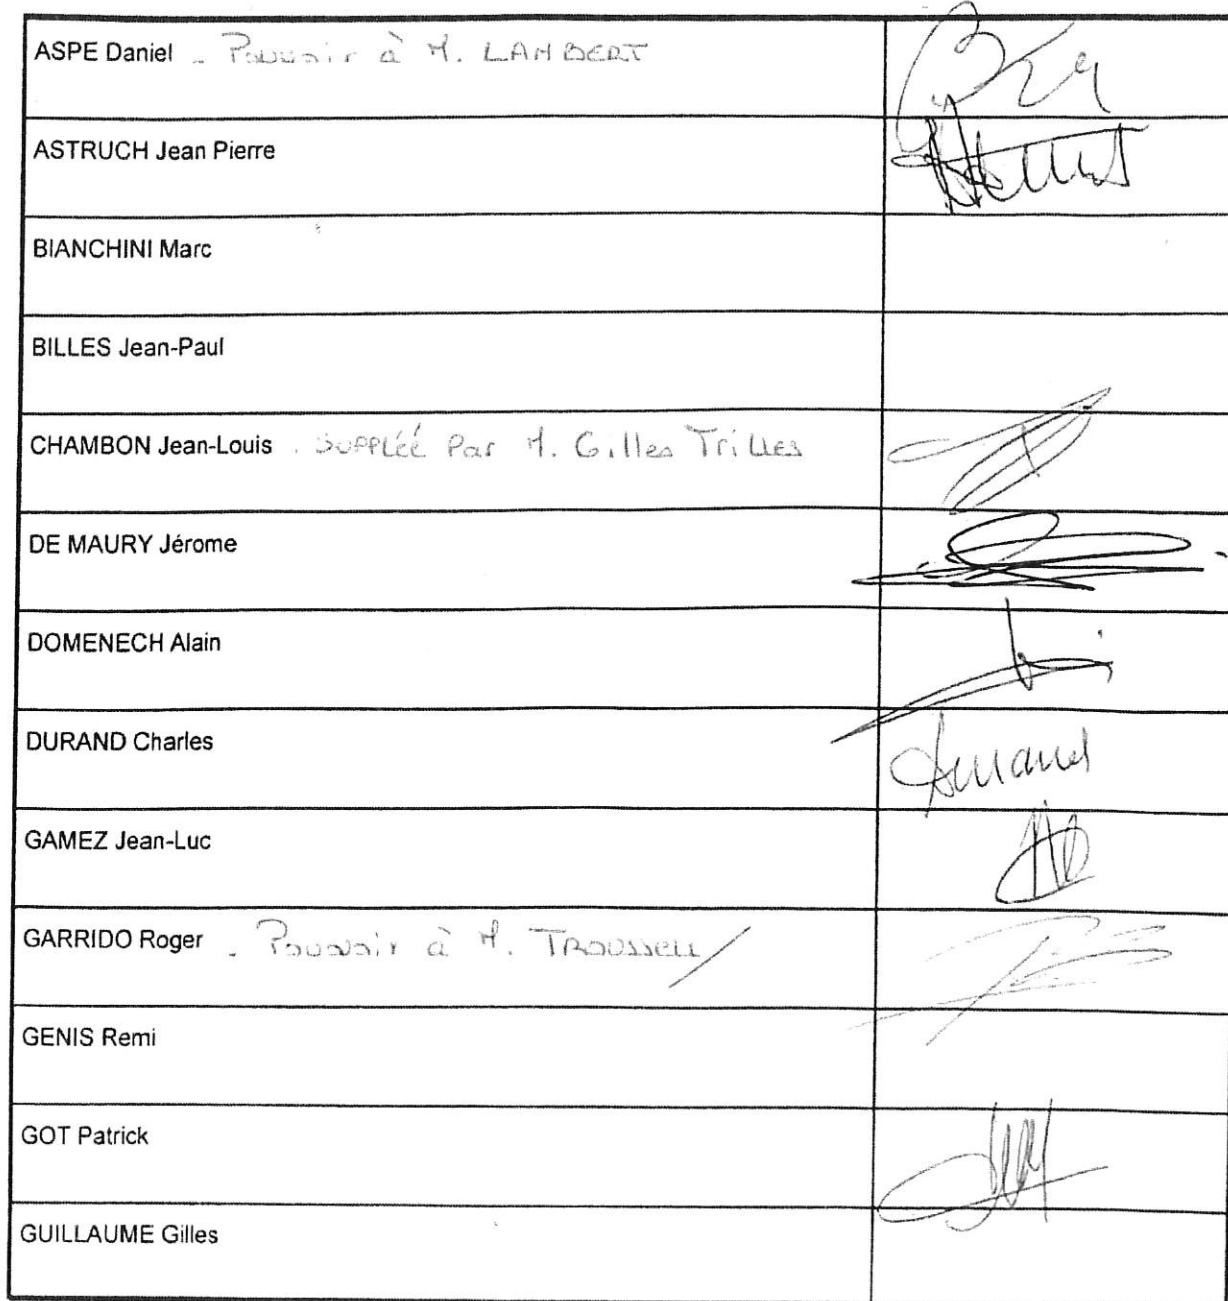 ASPE Daniel - Pouvoir à M. LAMBERT
ASTRUCH Jean Pierre
BIANCHINI Marc
BILLES Jean-Paul
CHAMBON Jean-Louis . Suppléé Par M. Gilles Trilles
DE MAURY Jérome
DOMENECH Alain
DURAND Charles
GAMEZ Jean-Luc
GARRIDO Roger - Pouvoir à M.
GENIS Remi
GOT Patrick
GUILLAUME Gilles